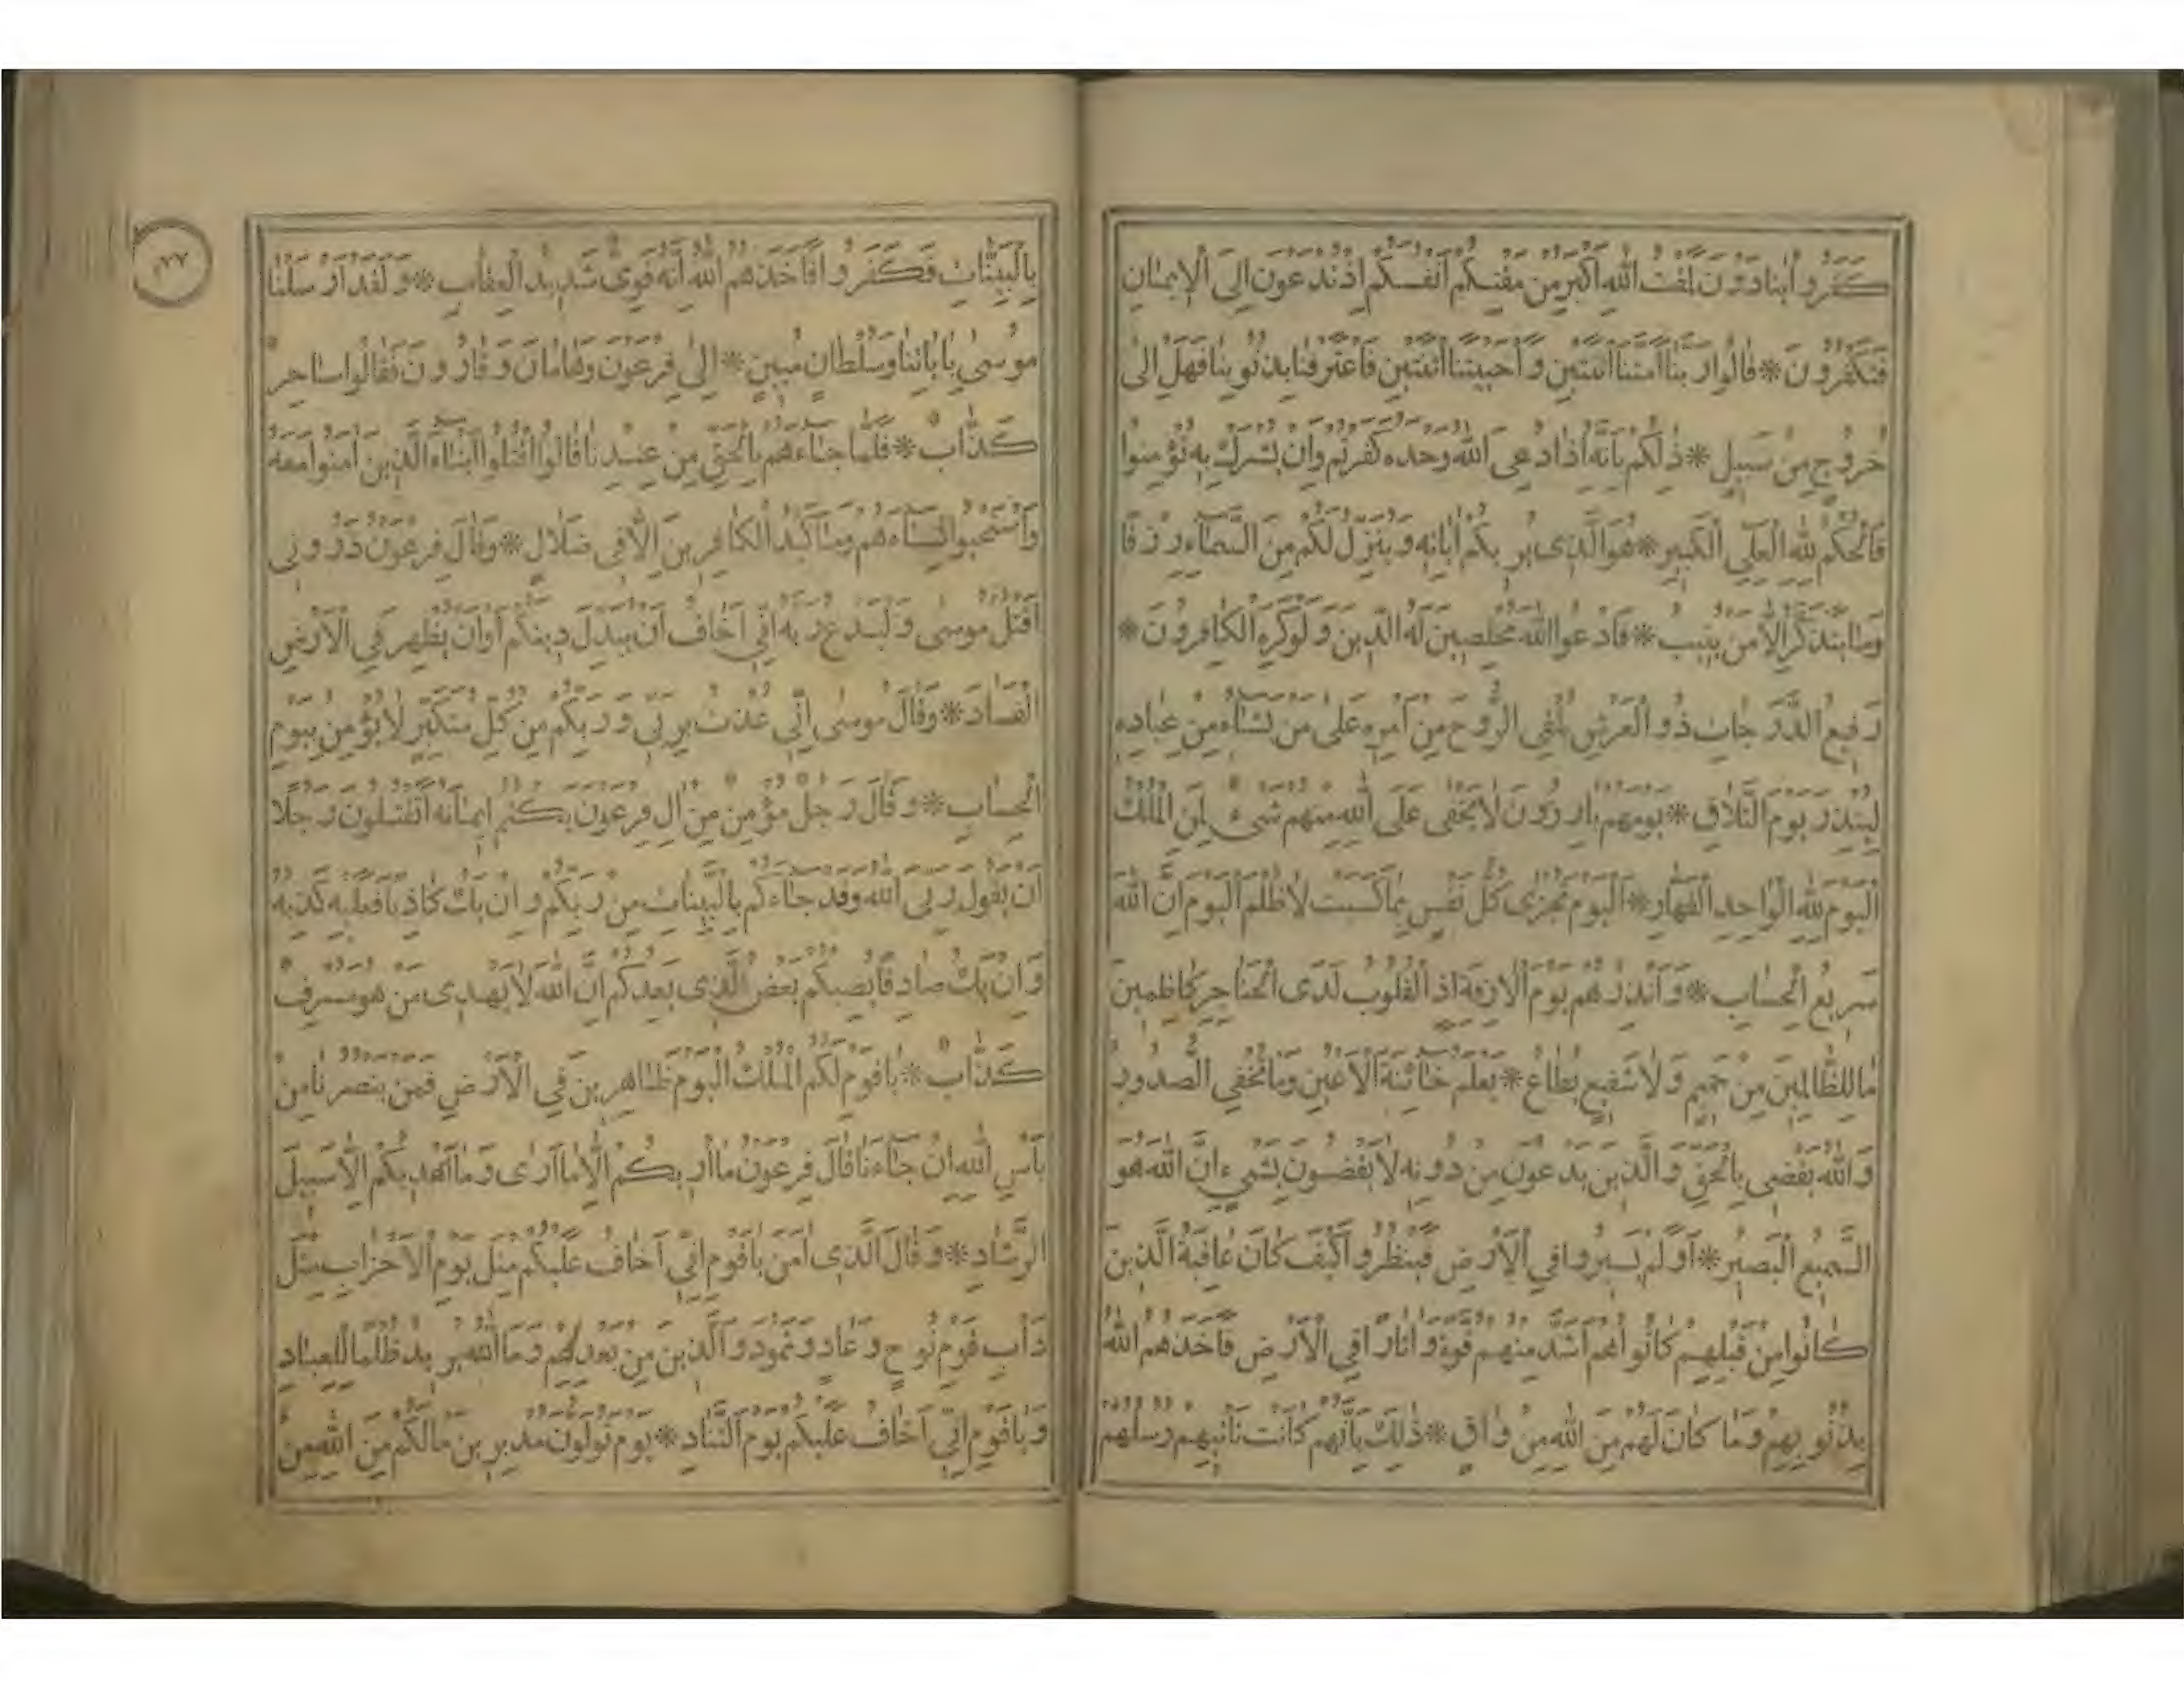 كَفَرُوا يُنَادَوْنَ لَمَقْتُ اللّٰهِ اَكْبَرُ مِنْ مَقْتِكُمْ اَنْفُسَكُمْ اِذْ تُدْعَوْنَ اِلَى الْاِيمَانِ
فَتَكْفُرُونَ * قَالُوا رَبَّنَا اَمَتَّنَا اثْنَتَيْنِ وَاَحْيَيْتَنَا اثْنَتَيْنِ فَاعْتَرَفْنَا بِذُنُوبِنَا فَهَلْ اِلٰى
خُرُوجٍ مِنْ سَبِيلٍ * ذٰلِكُمْ بِاَنَّهُ اِذَا دُعِىَ اللّٰهُ وَحْدَهُ كَفَرْتُمْ وَاِنْ يُشْرَكْ بِهِ تُؤْمِنُوا
فَالْحُكْمُ لِلّٰهِ الْعَلِيِّ الْكَبِيرِ * هُوَ الَّذِى يُرِيكُمْ اٰيَاتِهِ وَيُنَزِّلُ لَكُمْ مِنَ السَّمَاءِ رِزْقًا
وَمَا يَتَذَكَّرُ اِلَّا مَنْ يُنِيبُ * فَادْعُوا اللّٰهَ مُخْلِصِينَ لَهُ الدِّينَ وَلَوْ كَرِهَ الْكَافِرُونَ *
رَفِيعُ الدَّرَجَاتِ ذُو الْعَرْشِ يُلْقِى الرُّوحَ مِنْ اَمْرِهِ عَلٰى مَنْ يَشَاءُ مِنْ عِبَادِهِ
لِيُنْذِرَ يَوْمَ التَّلَاقِ * يَوْمَ هُمْ بَارِزُونَ لَا يَخْفٰى عَلَى اللّٰهِ مِنْهُمْ شَىْءٌ لِمَنِ الْمُلْكُ
الْيَوْمَ لِلّٰهِ الْوَاحِدِ الْقَهَّارِ * اَلْيَوْمَ تُجْزٰى كُلُّ نَفْسٍ بِمَا كَسَبَتْ لَا ظُلْمَ الْيَوْمَ اِنَّ اللّٰهَ
سَرِيعُ الْحِسَابِ * وَاَنْذِرْهُمْ يَوْمَ الْاٰزِفَةِ اِذِ الْقُلُوبُ لَدَى الْحَنَاجِرِ كَاظِمِينَ
مَا لِلظَّالِمِينَ مِنْ حَمِيمٍ وَلَا شَفِيعٍ يُطَاعُ * يَعْلَمُ خَائِنَةَ الْاَعْيُنِ وَمَا تُخْفِى الصُّدُورُ
وَاللّٰهُ يَقْضِى بِالْحَقِّ وَالَّذِينَ يَدْعُونَ مِنْ دُونِهِ لَا يَقْضُونَ بِشَىْءٍ اِنَّ اللّٰهَ هُوَ
السَّمِيعُ الْبَصِيرُ * اَوَلَمْ يَسِيرُوا فِى الْاَرْضِ فَيَنْظُرُوا كَيْفَ كَانَ عَاقِبَةُ الَّذِينَ
كَانُوا مِنْ قَبْلِهِمْ كَانُوا هُمْ اَشَدَّ مِنْهُمْ قُوَّةً وَاٰثَارًا فِى الْاَرْضِ فَاَخَذَهُمُ اللّٰهُ
بِذُنُوبِهِمْ وَمَا كَانَ لَهُمْ مِنَ اللّٰهِ مِنْ وَاقٍ * ذٰلِكَ بِاَنَّهُمْ كَانَتْ تَاْتِيهِمْ رُسُلُهُمْ
بِالْبَيِّنَاتِ فَكَفَرُوا فَاَخَذَهُمُ اللّٰهُ اِنَّهُ قَوِىٌّ شَدِيدُ الْعِقَابِ * وَلَقَدْ اَرْسَلْنَا
مُوسٰى بِاٰيَاتِنَا وَسُلْطَانٍ مُبِينٍ * اِلٰى فِرْعَوْنَ وَهَامَانَ وَقَارُونَ فَقَالُوا سَاحِرٌ
كَذَّابٌ * فَلَمَّا جَاءَهُمْ بِالْحَقِّ مِنْ عِنْدِنَا قَالُوا اقْتُلُوا اَبْنَاءَ الَّذِينَ اٰمَنُوا مَعَهُ
وَاسْتَحْيُوا نِسَاءَهُمْ وَمَا كَيْدُ الْكَافِرِينَ اِلَّا فِى ضَلَالٍ * وَقَالَ فِرْعَوْنُ ذَرُونِى
اَقْتُلْ مُوسٰى وَلْيَدْعُ رَبَّهُ اِنِّى اَخَافُ اَنْ يُبَدِّلَ دِينَكُمْ اَوْ اَنْ يُظْهِرَ فِى الْاَرْضِ
الْفَسَادَ * وَقَالَ مُوسٰى اِنِّى عُذْتُ بِرَبِّى وَرَبِّكُمْ مِنْ كُلِّ مُتَكَبِّرٍ لَا يُؤْمِنُ بِيَوْمِ
الْحِسَابِ * وَقَالَ رَجُلٌ مُؤْمِنٌ مِنْ اٰلِ فِرْعَوْنَ يَكْتُمُ اِيمَانَهُ اَتَقْتُلُونَ رَجُلًا
اَنْ يَقُولَ رَبِّىَ اللّٰهُ وَقَدْ جَاءَكُمْ بِالْبَيِّنَاتِ مِنْ رَبِّكُمْ وَاِنْ يَكُ كَاذِبًا فَعَلَيْهِ كَذِبُهُ
وَاِنْ يَكُ صَادِقًا يُصِبْكُمْ بَعْضُ الَّذِى يَعِدُكُمْ اِنَّ اللّٰهَ لَا يَهْدِى مَنْ هُوَ مُسْرِفٌ
كَذَّابٌ * يَا قَوْمِ لَكُمُ الْمُلْكُ الْيَوْمَ ظَاهِرِينَ فِى الْاَرْضِ فَمَنْ يَنْصُرُنَا مِنْ
بَاْسِ اللّٰهِ اِنْ جَاءَنَا قَالَ فِرْعَوْنُ مَا اُرِيكُمْ اِلَّا مَا اَرٰى وَمَا اَهْدِيكُمْ اِلَّا سَبِيلَ
الرَّشَادِ * وَقَالَ الَّذِى اٰمَنَ يَا قَوْمِ اِنِّى اَخَافُ عَلَيْكُمْ مِثْلَ يَوْمِ الْاَحْزَابِ مِثْلَ
دَاْبِ قَوْمِ نُوحٍ وَعَادٍ وَثَمُودَ وَالَّذِينَ مِنْ بَعْدِهِمْ وَمَا اللّٰهُ يُرِيدُ ظُلْمًا لِلْعِبَادِ
وَيَا قَوْمِ اِنِّى اَخَافُ عَلَيْكُمْ يَوْمَ التَّنَادِ * يَوْمَ تُوَلُّونَ مُدْبِرِينَ مَا لَكُمْ مِنَ اللّٰهِ مِنْ